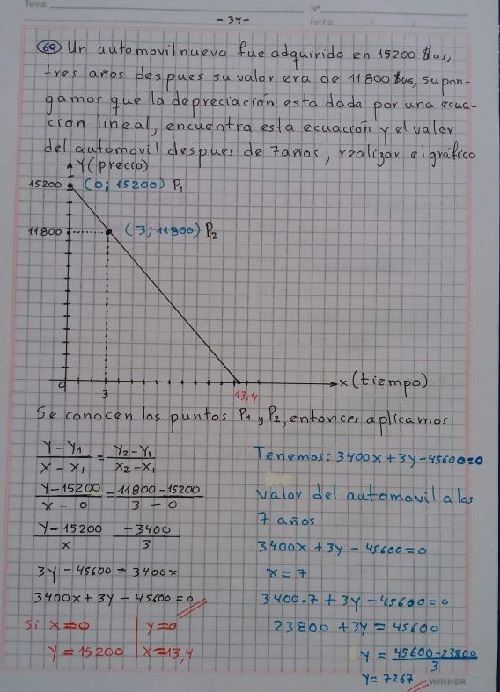 Tema:
Nº
- 34 -
Fecha:
Un automovil nuevo fue adquirido en 15200 $us,
tres años despues su valor era de 11800 $us, supon-
gamos que la depreciación esta dada por una ecua-
cion lineal, encuentra esta ecuación y el valor
del automovil despues de 7 años, realizar el gráfico
Y(precio)
15200 (0; 15200) P1
11800 (3; 11800) P2
0 3 13,4 x(tiempo)
Se conocen los puntos P1 y P2, entonces aplicamos
Y-Y1 / X-X1 = Y2-Y1 / X2-X1
Y-15200 / X-0 = 11800-15200 / 3-0
Y-15200 / X -3400 / 3
3Y-45600 = 3400x
3400x+3Y-45600=0
Si x=0 | y=0
Y=15200 | X=13,4
Tenemos: 3400x+3Y-45600=0
Valor del automovil a los
7 años
3400x+3Y-45600=0
x=7
3400.7+3Y-45600=0
23800+3Y=45600
Y = 45600-23800 / 3
Y=7267
WINNER